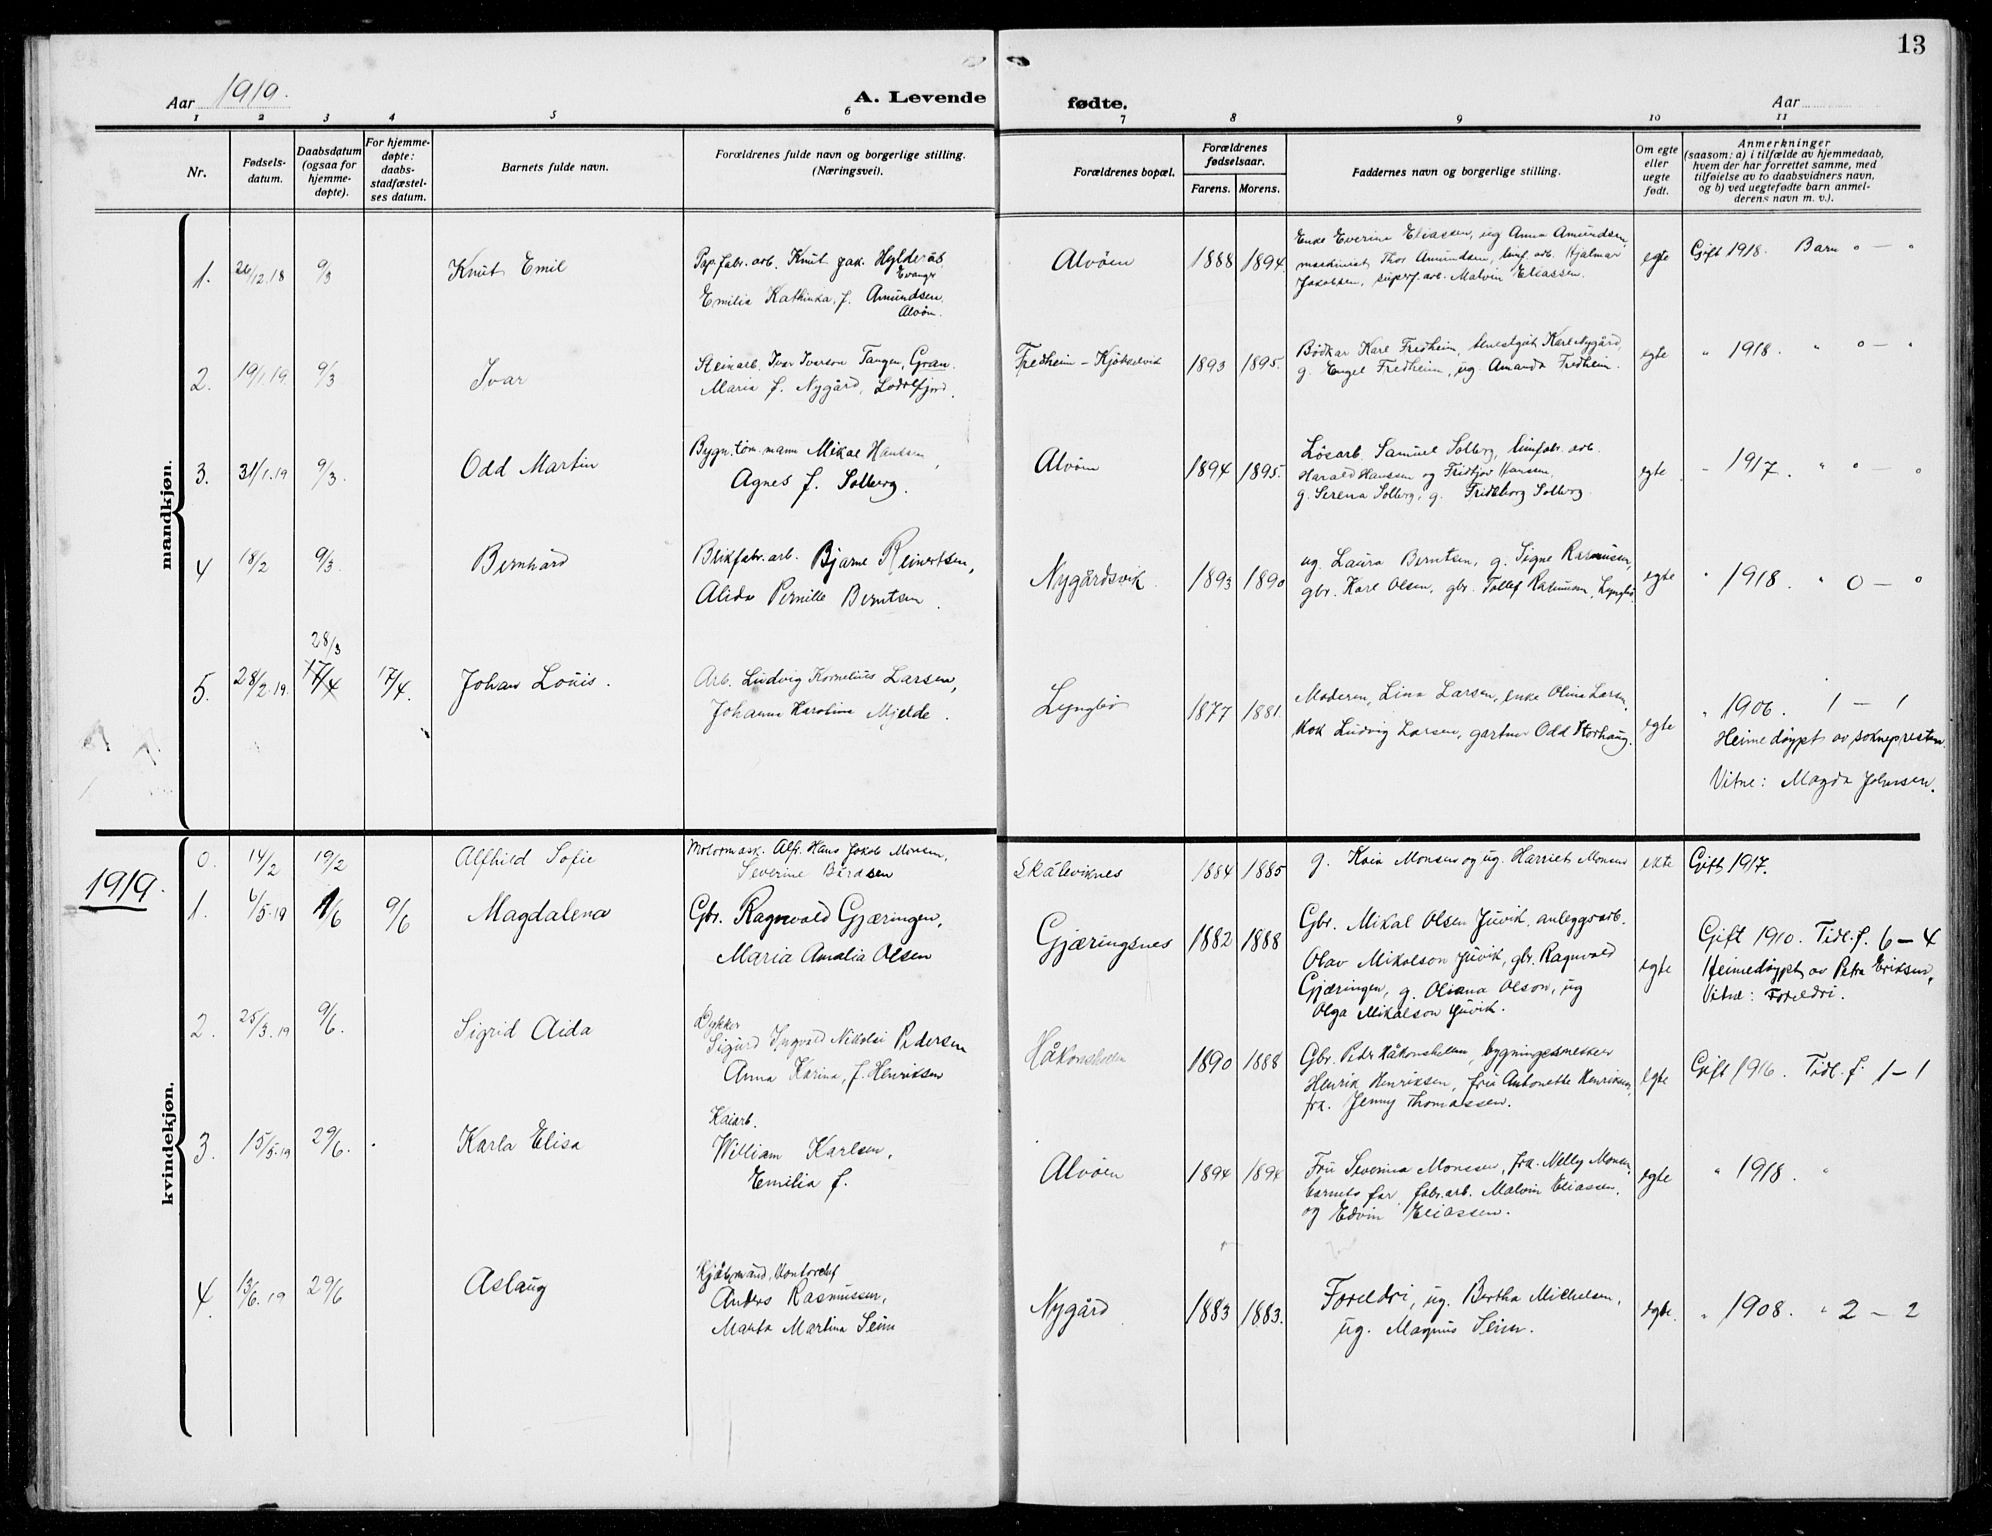 13
Aar 1919.
A. Levende fødte.
Aar
1 2 3 4 5 6 7 8 9 10 11
Nr.
Fødsels-
datum.
Daabsdatum
(ogsaa for
hjemme-
døpte).
For hjemme-
døpte:
daabs-
stadfæstel-
ses datum.
Barnets fulde navn.
Forældrenes fulde navn og borgerlige stilling.
(Næringsvei).
Forældrenes bopæl.
Forældrenes
fødselsaar.
Farens. Morens.
Faddernes navn og borgerlige stilling.
Om egte
eller
uegte
født.
Anmerkninger
(saasom: a) i tilfælde av hjemmedaab,
hvem der har forrettet samme, med
tilføielse av to daabsvidners navn,
og b) ved uegtefødte barn anmel-
derens navn m. v.).
mandkjøn.
1. 26/12.18 9/3 Knut Emil
Pap.fabr.arb. Knut Jak. Hylderås
Evanger
Emilia Kathinka, f. Amundsen
Alvøn.
Alvöen 1888 1894
Enke Everina Eliassen, ug Anna Amundsen,
maskinist Thor Amundsen, limf. arb. Hjalmar
Jakobsen, papirf. arb. Malvin Eliassen.
egte
Gift 1918. Barn 0 — 0
2. 19/1.19 9/3 Ivar
Steinarb. Ivar Ivarson Tangen, Gran.
Maria f. Nygård, Loddefjord.
Fredheim - Kjökkelvik 1893 1895.
Bödkar Karl Fredheim, Karl Nygård,
g. Engel Fredheim, ug. Amanda Fredheim.
egte
" 1918. " 0 — 0
3. 31/1.19 9/3. Odd Martin
Bygn.töm.mann Mikal Hansen,
Agnes f. Solberg.
Alvöen 1894 1895.
Lösarb. Samuel Solberg, limfabr. arb.
Harald Hanssen og Fridtjov Hansen,
g. Serena Solberg, g. Fridborg Solberg
egte
" 1917. " 0 — 0
4 18/2 9/3. Bernhard
Blikfabr.arb. Bjarne Reinertsen,
Alida Pernille Berntsen.
Nygårdsvik 1893 1890
ug. Laura Berntsen, g. Signe Rasmussen,
gbr. Karl Olsen, gbr. Tollef Rasmussen, Lyngbö
egte
" 1918. " 0 — 0
28/3
5. 28/2.19. 17/4 17/4. Johan Louis.
Arb. Ludvig Kornelius Larsen,
Johanna Karolina Mjelde.
Lyngbö 1877 1881.
Moderen, Lina Larsen, enke Olina Larsen,
kok Ludvig Larsen, gartner Odd Storhaug.
egte
" 1906. 1 — 1
Heimedöypt av soknepresten
Vitne: Magda Johnsen.
1919.
kvindekjøn.
0. 14/2 19/2 Alfhild Sofie
Motormask. Alfr. Hans Jakob Monsen,
Severine Bårdsen
Skåleviknes 1884 1885
g. Kaia Monsen og ug. Harriet Monsen
ekte
Gift 1917.
1. 6/5.19 1/6 9/6 Magdalena
Gbr. Ragnvald Gjæringen,
Maria Amalia Olsen
Gjæringsnes 1882 1888
Gbr. Mikal Olsen Juvik, anleggsarb.
Olav Mikalson Juvik, gbr. Ragnvald
Gjæringen, g. Oliana Olson, ug
Olga Mikalson Juvik.
egte
Gift 1910. Tidl. f. 6 — 4
Heimedöypt av Petra Eriksen,
Vitne: Foreldri.
2. 25/3.19 9/6. Sigrid Aida
Dykker
Sigurd Ingvald Nikolai Pedersen
Anna Karina, f. Henriksen
Håkonshellen 1890 1888
Gbr. Peder Håkonshellen, bygningsmester
Henrik Henriksen, fru Antonette Henriksen,
frk. Jenny Thomassen.
egte
Gift 1916. Tidl. f. 1 — 1
3. 15/5.19 29/6. Karla Elisa
Kaiarb.
William Karlsen,
Emilia f.
Alvöen 1894 1894
Fru Severina Monssen, frk. Nelly Monsen,
barnets far, fabr.arb. Malvin Eliassen,
og Edvin Eliassen.
egte
" 1918. "
4. 13/6.19 29/6 Aslaug
Kjöbmand, kontorchef
Anders Rasmussen,
Marta Martina Seim
Nygård 1883 1883.
Foreldri, ug. Bertha Michelsen,
ug. Magnus Seim.
egte.
" 1908. " 2 — 2